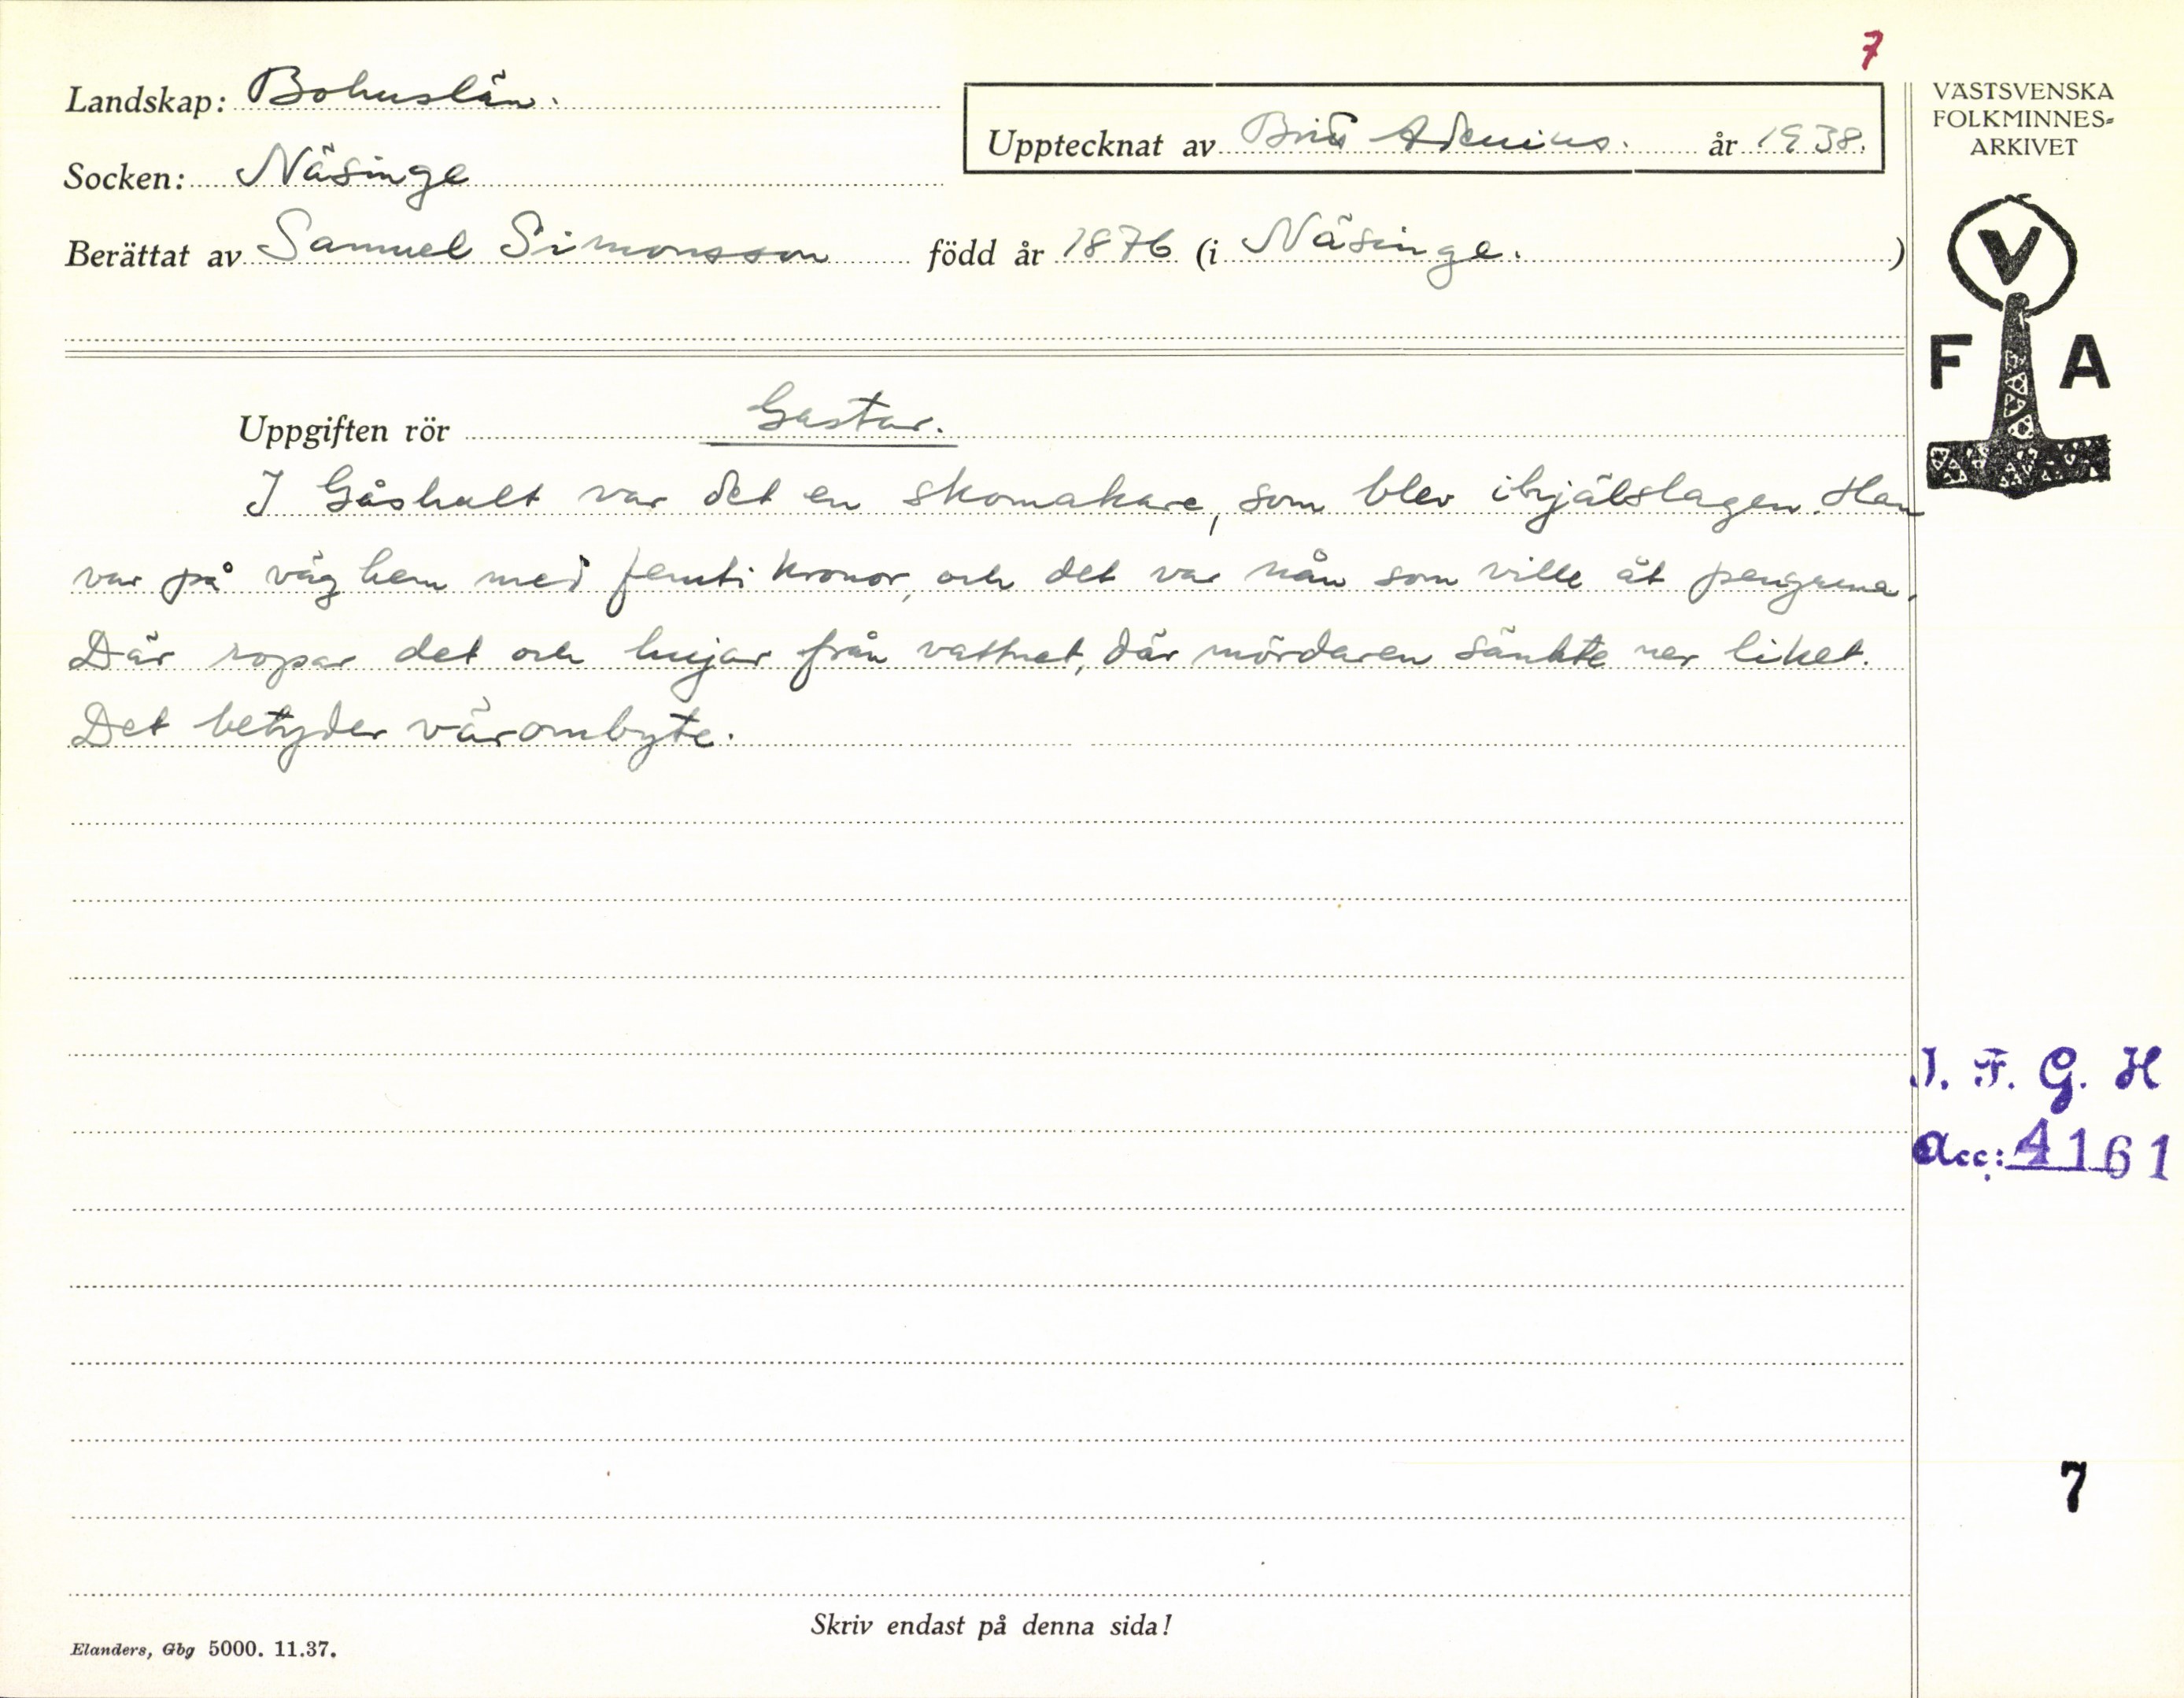 7
Landskap: Bohuslän.
Upptecknat av Britt Adenius. år 1938.
Socken: Näsinge
Berättat av Samuel Simonsson född år 1876 (i Näsinge.)
VÄSTSVENSKA
FOLKMINNES=
ARKIVET
V
F A
Uppgiften rör Gastar.
I Gåshult var det en skomakare, som blev ihjälslagen. Han
var på väg hem med femti kronor, och det var nån som ville åt pengarna.
Där ropar det och hujar från vattnet, där mördaren sänkte ner liket.
Det betyder värombyte.
I. F. G. H
Acc: 4161
7
Skriv endast på denna sida!
Elanders, Gbg 5000. 11.37.